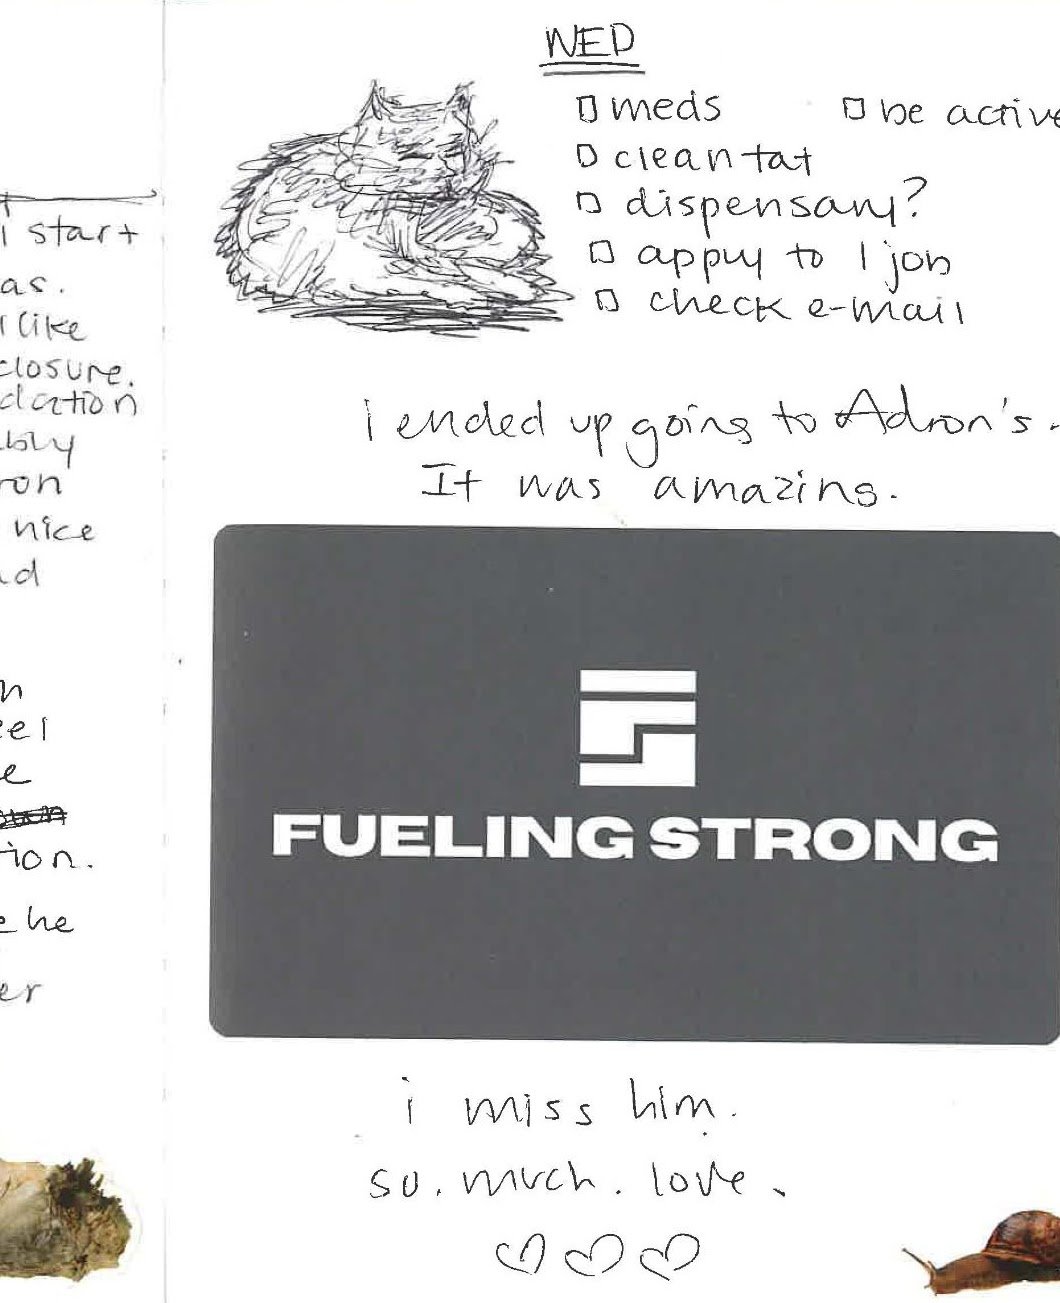 i start
as.
like
closure.
dation
ably
ron
nice
nd
n
eel
e
tion.
e he
er
WED
meds
be active
clean tat
dispensary?
apply to 1 job
check e-mail
i ended up going to Adron's.
It was amazing.
FUELING STRONG
i miss him.
so. much. love.